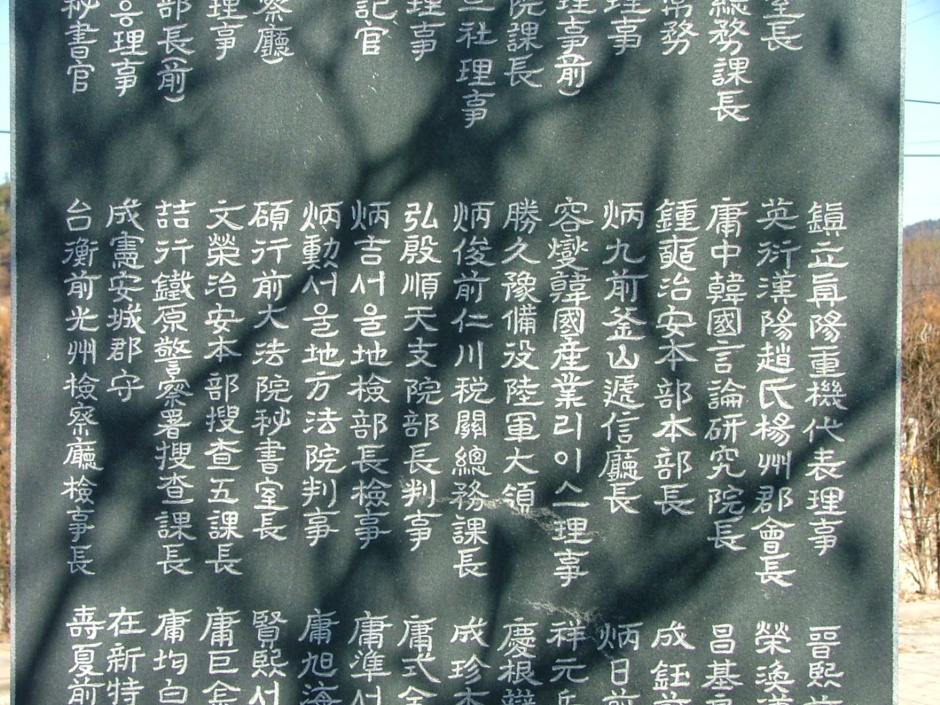 室長
總務課長
常務
理事
理事前)
院課長
社理事
理事
記官
察廳)
理事
部長(前)
理事
秘書官
鎭立眞陽重機代表理事
英衍漢陽趙氏楊州郡會長
庸中韓國言論研究院長
鍾奭治安本部本部長
炳九前釜山遞信廳長
容燮韓國産業리이스理事
勝久豫備役陸軍大領
炳俊前仁川税關總務課長
弘殷順天支院部長判事
炳吉서울地檢部長檢事
炳勳서울地方法院判事
碩行前大法院秘書室長
文榮治安本部搜查五課長
喆行鐵原警察署搜查課長
成憲安城郡守
台衡前光州檢察廳檢事長
晉熙
榮渙
昌基
成鈺前
炳日前
祥元
慶根
成珍本
庸式
庸準서
庸旭海
賢熙서
庸巨
庸均白
在新特
壽夏前